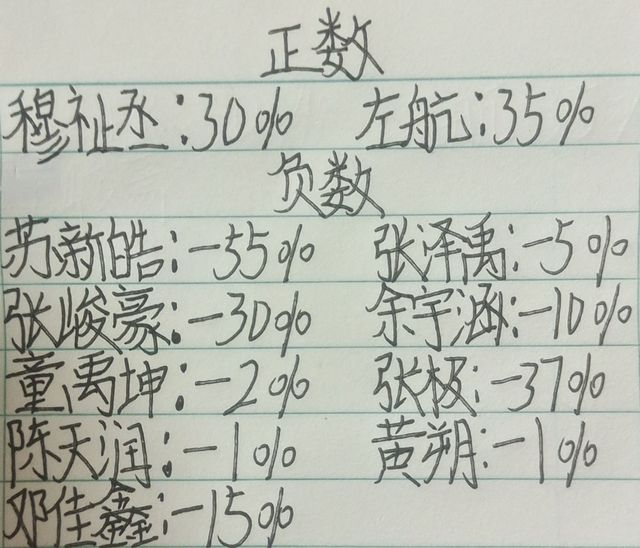 正数
穆祉丞:30% 左航:35%
负数
苏新皓:-55% 张泽禹:-5%
张峻豪:-30% 余宇涵:-10%
童禹坤:-2% 张极:-37%
陈天润:-1% 黄朔:-1%
邓佳鑫:-15%